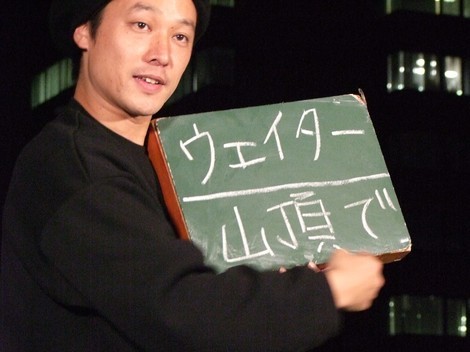 ウェイター
山頂で